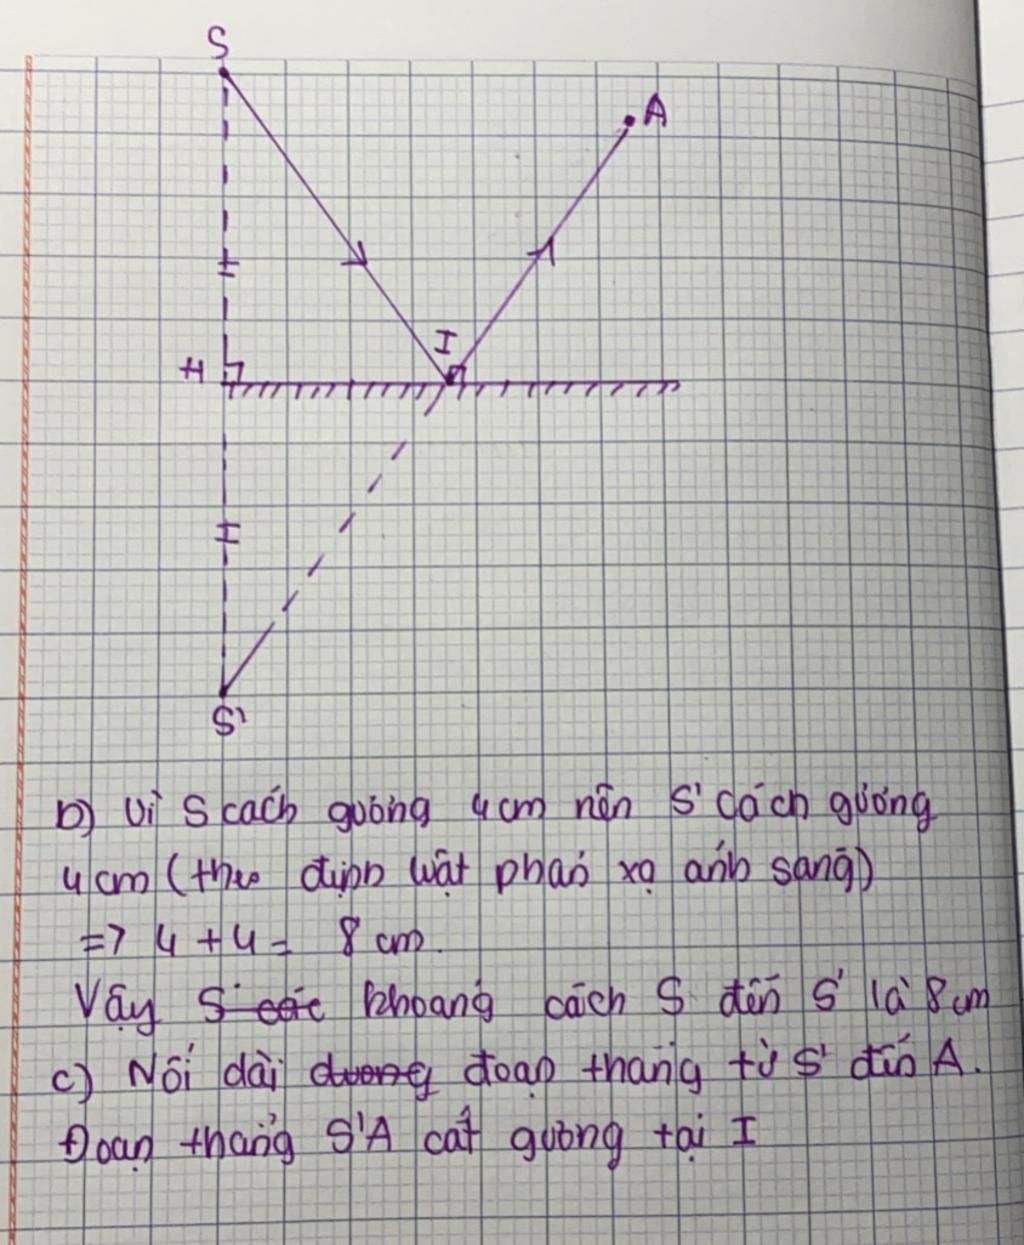 S
A
I
H
S'
b) Vì S cách gương 4cm nên S' cách gương
4cm (theo định luật phản xạ ánh sáng)
=> 4 + 4 = 8 cm.
Vậy S các khoảng cách S đến S' là 8cm
c) Nối dài đương đoạn thẳng từ S' đến A.
Đoạn thẳng S'A cắt gương tại I